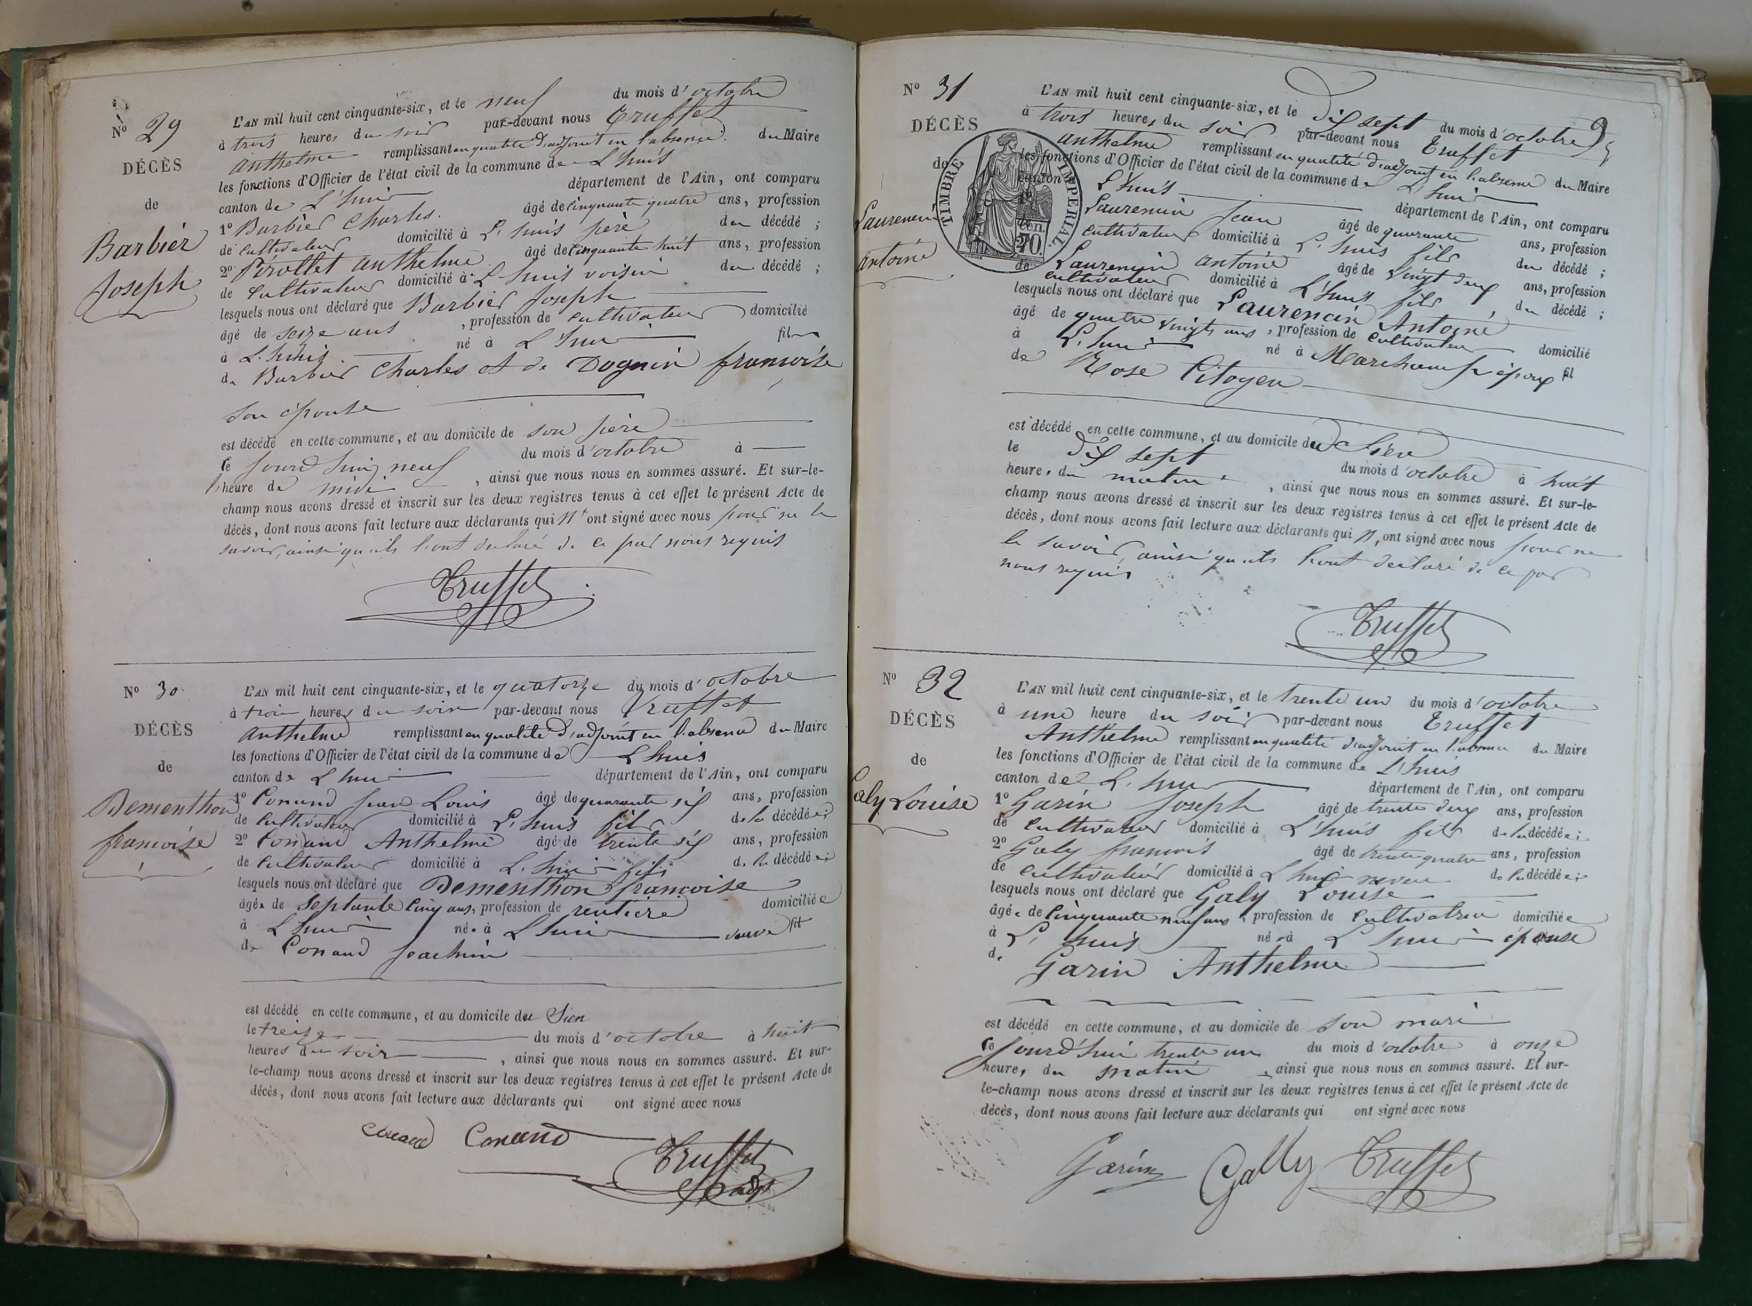 N° 29
DÉCÈS
de
Barbier
Joseph
L'AN mil huit cent cinquante-six, et le neuf du mois d'octobre
à trois heures du soir par-devant nous Truffet
anthelme remplissant en qualité d'adjoint en l'absence du Maire
les fonctions d'Officier de l'état civil de la commune de L'huis
canton de L'huis département de l'Ain, ont comparu
1° Barbier Charles. âgé de cinquante quatre ans, profession
de cultivateur domicilié à L'huis père du décédé ;
2° Pérollet anthelme âgé de cinquante huit ans, profession
de cultivateur domicilié à L'huis voisin du décédé ;
lesquels nous ont déclaré que Barbier Joseph
âgé de seize ans, profession de cultivateur domicilié
à L'huis né à L'huis fils
de Barbier Charles et de Dognin françoise
son épouse
est décédé en cette commune, et au domicile de son père
ce jourd'hui neuf du mois d'octobre à
heure de midi, ainsi que nous nous en sommes assuré. Et sur-le-
champ nous avons dressé et inscrit sur les deux registres tenus à cet effet le présent Acte de
décès, dont nous avons fait lecture aux déclarants qui n'ont signé avec nous pour ne le
savoir, ainsi qu'ils l'ont declaré de ce par nous requis
Truffet
N° 30
DÉCÈS
de
Dementhon
françoise
L'AN mil huit cent cinquante-six, et le quatorze du mois d'octobre
à trois heures du soir par-devant nous Truffet
Anthelme remplissant en qualité d'adjoint en l'absence du Maire
les fonctions d'Officier de l'état civil de la commune de L'huis
canton de L'huis département de l'Ain, ont comparu
1° Conand Jean Louis âgé de quarante six ans, profession
de cultivateur domicilié à L'huis fils de la décédée ;
2° Conand Anthelme âgé de trente six ans, profession
de cultivateur domicilié à L'huis fils de la décédée ;
lesquels nous ont déclaré que Dementhon françoise
âgée de septante cinq ans, profession de rentière domiciliée
à L'huis née à L'huis veuve fil
de Conand Joachim
est décédé en cette commune, et au domicile du Sien
le treize du mois d'octobre à huit
heures du soir, ainsi que nous nous en sommes assuré. Et sur-
le-champ nous avons dressé et inscrit sur les deux registres tenus à cet effet le présent Acte de
décès, dont nous avons fait lecture aux déclarants qui ont signé avec nous
Conand Conand
Truffet
adjt
N° 31
DÉCÈS
de
Laurencin
Antoine
TIMBRE IMPÉRIAL
L'AN mil huit cent cinquante-six, et le dix sept du mois d'octobre
à trois heures du soir par-devant nous Truffet
anthelme remplissant en qualité d'adjoint en l'absence du Maire
les fonctions d'Officier de l'état civil de la commune de L'huis
canton de L'huis département de l'Ain, ont comparu
Laurencin Jean âgé de quarante ans, profession
cultivateur domicilié à L'huis fils du décédé ;
Laurencin antoine âgé de vingt deux ans, profession
de cultivateur domicilié à L'huis fils du décédé ;
lesquels nous ont déclaré que Laurencin Antoine
âgé de quatre vingts ans, profession de cultivateur domicilié
à L'huis né à Marchamp époux fil
de Rose Citoyen
est décédé en cette commune, et au domicile du Sien
le dix sept du mois d'octobre à huit
heures du matin, ainsi que nous nous en sommes assuré. Et sur-le-
champ nous avons dressé et inscrit sur les deux registres tenus à cet effet le présent Acte de
décès, dont nous avons fait lecture aux déclarants qui n'ont signé avec nous pour ne
le savoir, ainsi qu'ils l'ont declaré de ce par
nous requis
Truffet
N° 32
DÉCÈS
de
Galy Louise
L'AN mil huit cent cinquante-six, et le trente un du mois d'octobre
à une heure du soir par-devant nous Truffet
Anthelme remplissant en qualité d'adjoint en l'absence du Maire
les fonctions d'Officier de l'état civil de la commune de L'huis
canton de L'huis département de l'Ain, ont comparu
1° Garin Joseph âgé de trente deux ans, profession
de cultivateur domicilié à L'huis fils de la décédée ;
2° Galy françois âgé de trente quatre ans, profession
de cultivateur domicilié à L'huis neveu de la décédée ;
lesquels nous ont déclaré que Galy Louise
âgée de cinquante neuf ans, profession de cultivatrice domiciliée
à L'huis née à L'huis épouse
de Garin Anthelme
est décédé en cette commune, et au domicile de son mari
ce jourd'hui trente un du mois d'octobre à onze
heures du matin, ainsi que nous nous en sommes assuré. Et sur-
le-champ nous avons dressé et inscrit sur les deux registres tenus à cet effet le présent Acte de
décès, dont nous avons fait lecture aux déclarants qui ont signé avec nous
Garin Gally Truffet